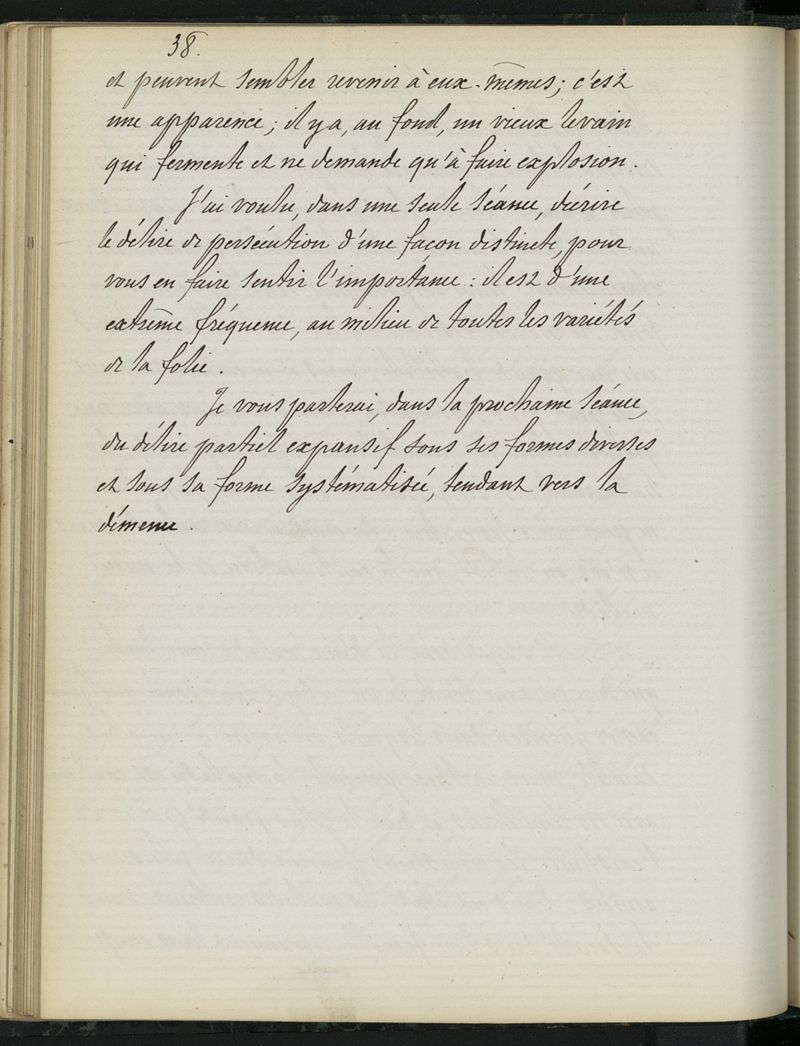 38.
et peuvent sembler revenir à eux-mêmes; c'est
une apparence; il y a, au fond, un vieux levain
qui fermente et ne demande qu'à faire explosion.
J'ai voulu, dans une seule séance, décrire
le délire de persécution d'une façon distincte, pour
vous en faire sentir l'importance : il est d'une
extrême fréquence, au milieu de toutes les variétés
de la folie.
Je vous parlerai, dans la prochaine séance,
du délire partiel expansif sous ses formes diverses
et sous sa forme systématisée, tendant vers la
démence.